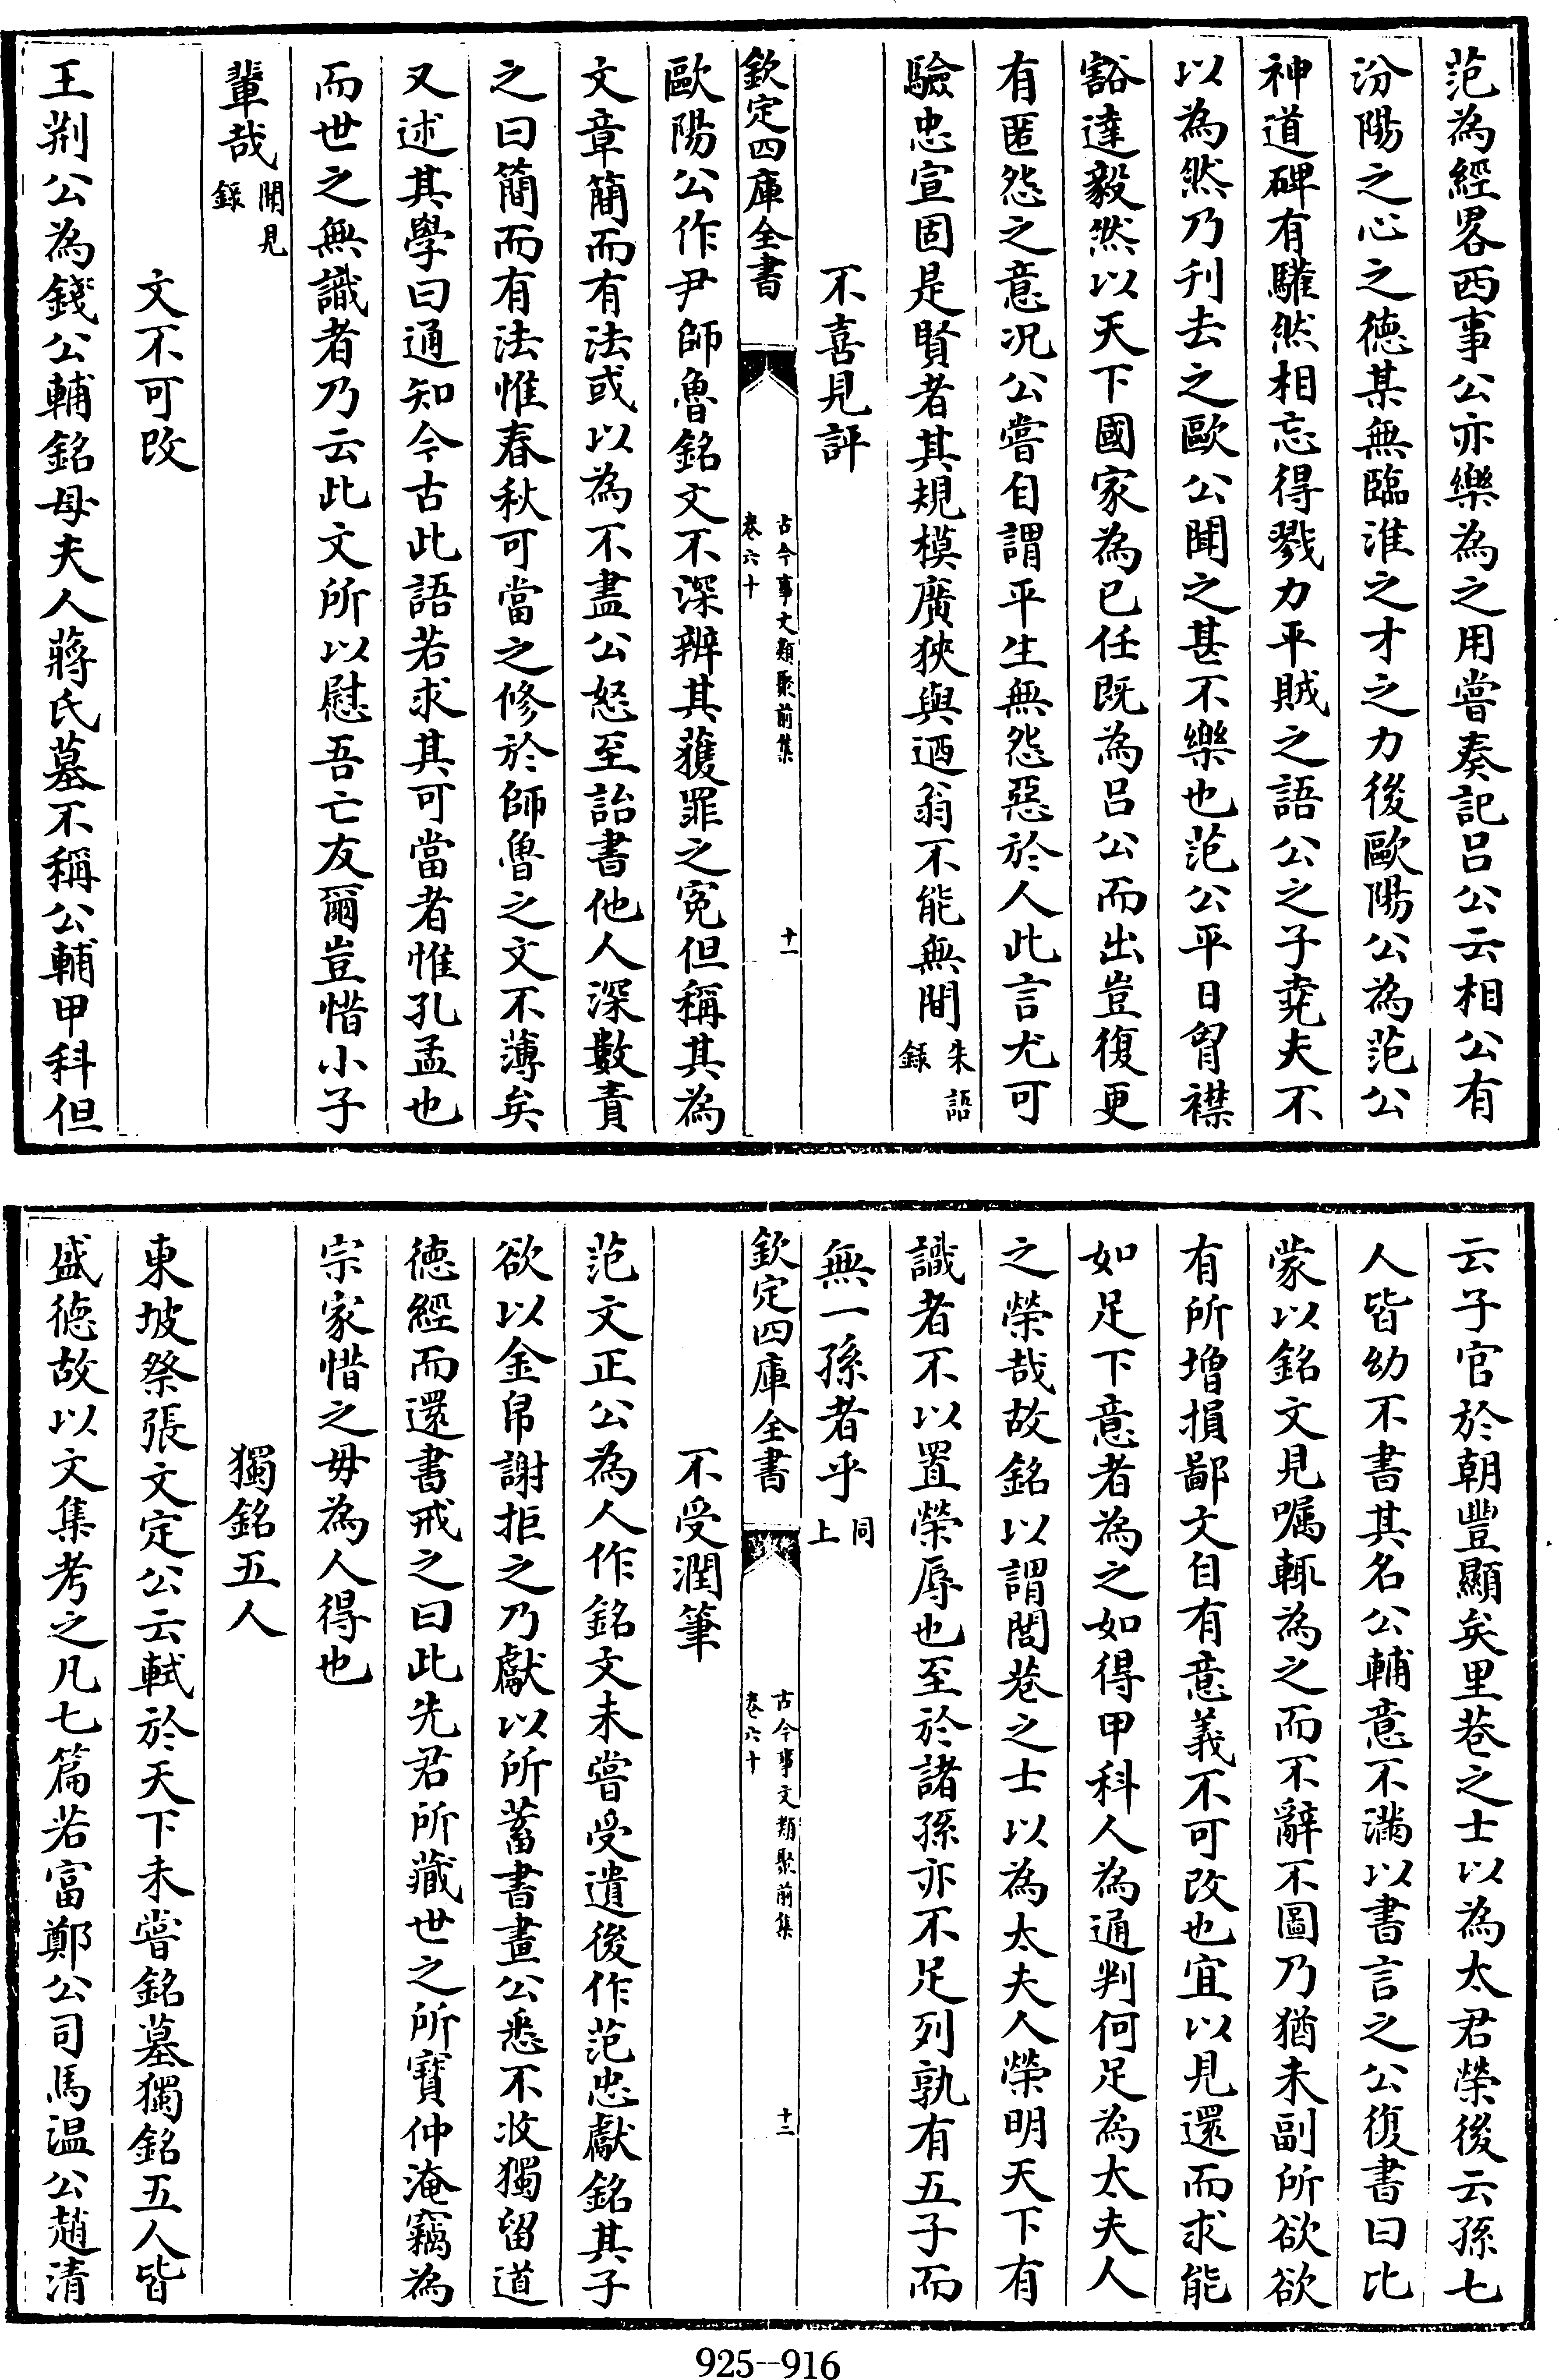 范為經畧西事公亦樂為之用嘗奏記吕公云相公有
汾陽之心之徳某無臨淮之才之力後歐陽公為范公
神道碑有驩然相忘得戮力平賊之語公之子堯夫不
以為然乃刋去之歐公聞之甚不樂也范公平日胷襟
豁達毅然以天下國家為已任既為吕公而出豈復更
有匿怨之意况公嘗自謂平生無怨惡於人此言尤可
驗忠宣固是賢者其規模廣狹與迺翁不能無間朱語錄
不喜見評
欽定四庫全書
古今事文類聚前集
卷六十
十一
歐陽公作尹師魯銘文不深辨其獲罪之寃但稱其為
文章簡而有法或以為不盡公怒至詒書他人深數責
之曰簡而有法惟春秋可當之修於師魯之文不薄矣
又述其學曰通知今古此語若求其可當者惟孔孟也
而世之無識者乃云此文所以慰吾亡友爾豈惜小子
輩哉聞見錄
文不可改
王荆公為錢公輔銘母夫人蔣氏墓不稱公輔甲科但
云子官於朝豐顯矣里巷之士以為太君榮後云孫七
人皆幼不書其名公輔意不滿以書言之公復書曰比
蒙以銘文見嘱輒為之而不辭不圖乃猶未副所欲欲
有所増損鄙文自有意義不可改也宜以見還而求能
如足下意者為之如得甲科人為通判何足為太夫人
之榮哉故銘以謂閭巷之士以為太夫人榮明天下有
識者不以置榮辱也至於諸孫亦不足列孰有五子而
無一孫者乎同上
欽定四庫全書
古今事文類聚前集
卷六十
十二
不受潤筆
范文正公為人作銘文未嘗受遺後作范忠獻銘其子
欲以金帛謝拒之乃獻以所蓄書畫公悉不收獨留道
徳經而還書戒之曰此先君所藏世之所寳仲淹竊為
宗家惜之毋為人得也
獨銘五人
東坡祭張文定公云軾於天下未嘗銘墓獨銘五人皆
盛徳故以文集考之凡七篇若富鄭公司馬温公趙清
925--916